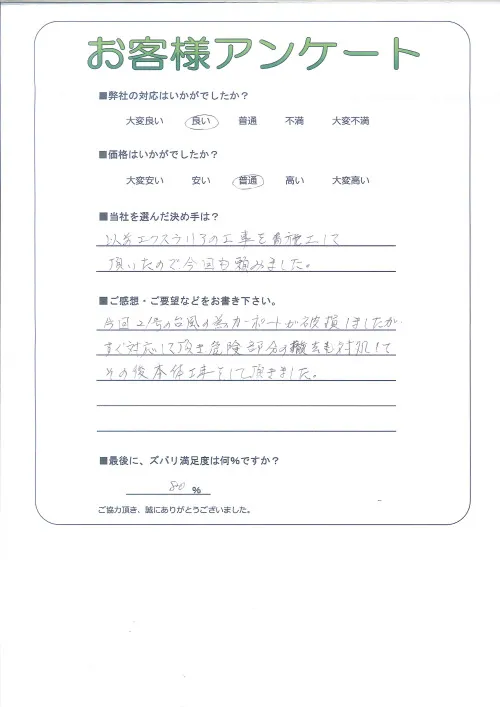 お客様アンケート
■弊社の対応はいかがでしたか？
大変良い 良い 普通 不満 大変不満
■価格はいかがでしたか？
大変安い 安い 普通 高い 大変高い
■当社を選んだ決め手は？
以前エクステリアの工事を施工して
頂いたので今回も頼みました。
■ご感想・ご要望などをお書き下さい。
今回21号の台風の為カーポートが破損しましたが
すぐ対応して頂き危険部分の撤去も対処して
その後本体工事をして頂きました。
■最後に、ズバリ満足度は何%ですか？
80 %
ご協力頂き、誠にありがとうございました。